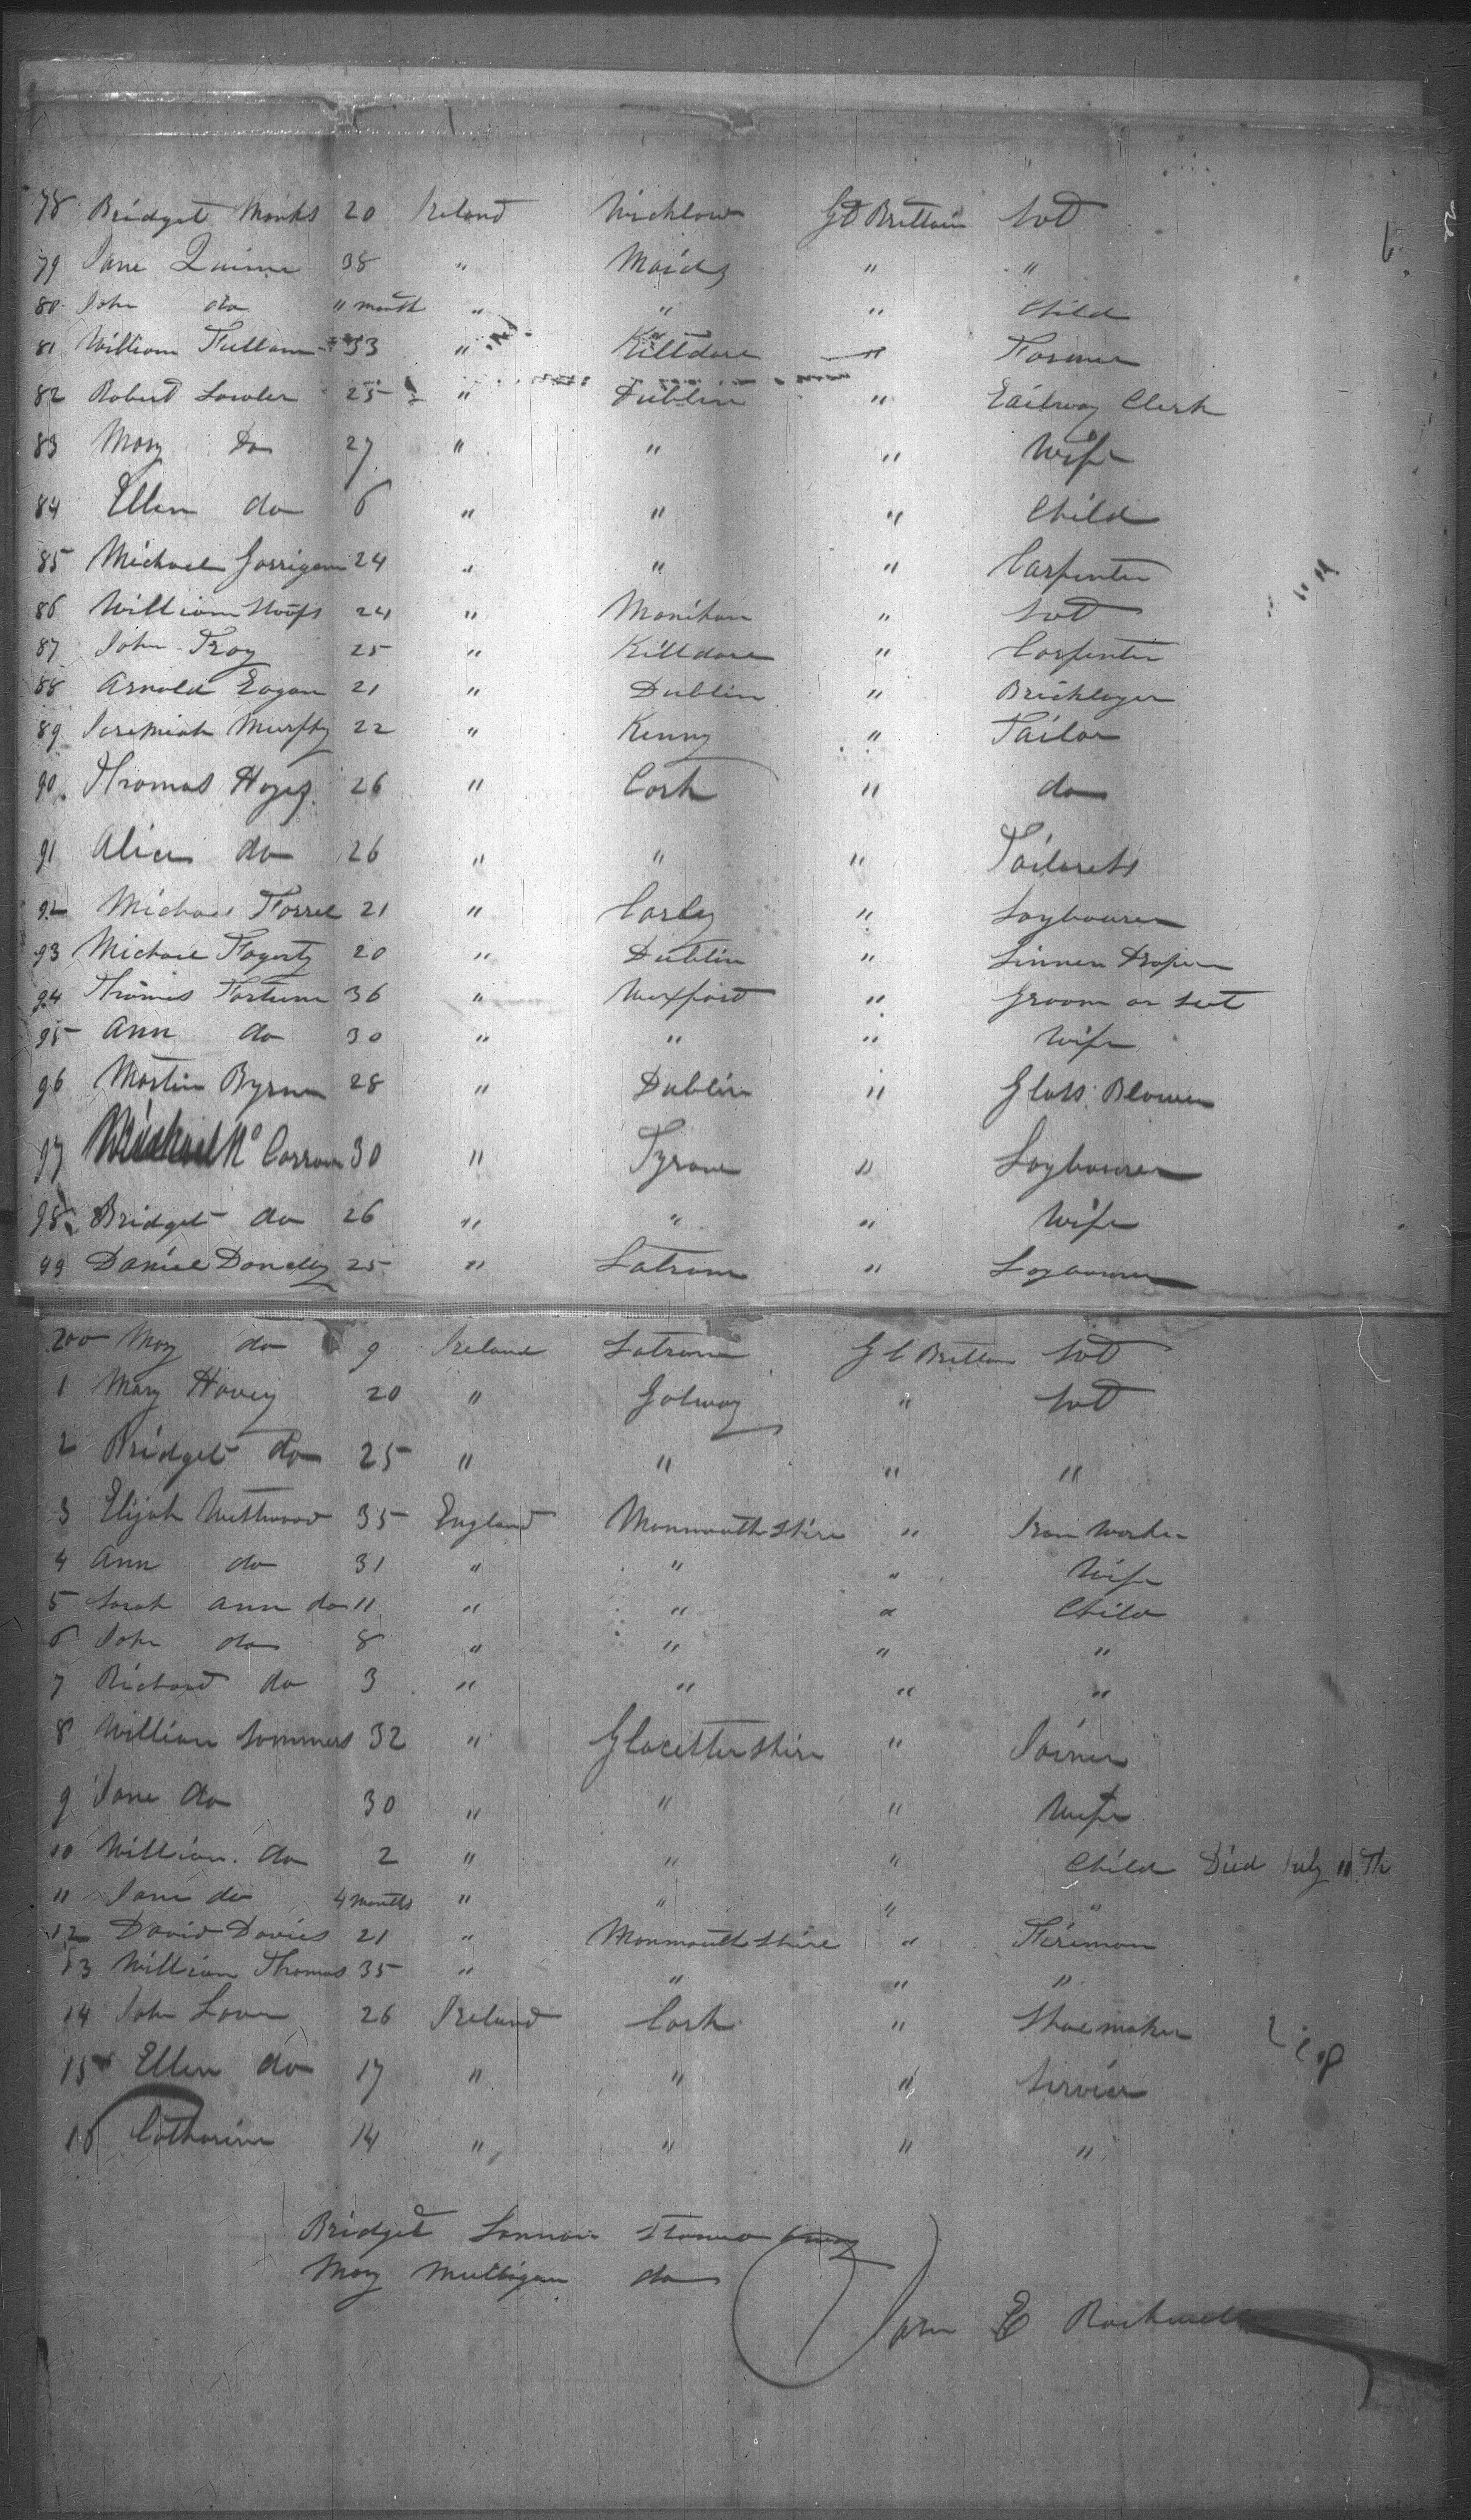 78 Bridget Monks 20 Ireland Wicklow Gt Brittain Svt
79 Jane Quinn 38 " " "
80 John do 11 month " " " Child
81 William Fullam 33 " Killdare " Farmer
82 Robert Lawler 25 " Dublin " Railway Clerk
83 Mary Do 27 " " " Wife
84 Ellen do 6 " " " Child
85 Michael Garrigan 24 " " " Carpenter
86 William 24 " Monihan " Svt
87 John Troy 25 " Killdare " Carpenter
88 Arnold Eagan 21 " Dublin " Bricklayer
89 Jeremiah Murfhy 22 " " Tailor
90 Thomas Hayes 26 " Cork " do
91 Alice do 26 " " " Tailorets
92 Michael Farrel 21 " " Laybourer
93 Michael Fogerty 20 " Dublin " Linnen Draper
94 Thomas Fortune 36 " Wexford " Groom or Svt
95 Ann do 30 " " " Wife
96 Martin Byrne 28 " Dublin " Glass Blower
97 Michael 30 " Tyrone " Laybourer
98 Bridget do 26 " " " Wife
99 Daniel Donelly 25 " Latrim " Laybourer
200 Mary do 9 Ireland Latrim Gt Brittan Svt
1 Mary Havey 20 " Galway " Svt
2 Bridget do 25 " " " "
3 Elijah Westwood 35 England Monmouthshire " Iron Worker
4 Ann do 31 " " " Wife
5 Sarah Ann do 11 " " " Child
6 John do 8 " " " "
7 Richard do 3 " " " "
8 William Sommers 32 " Glocestershire " Joiner
9 Jane do 30 " " " Wife
10 William do 2 " " " Child Died July 11th
11 Jane do 4 months " " " "
12 David Davies 21 " Monmouthshire " Fireman
13 William Thomas 35 " " " "
14 John 26 Ireland Cork " Shoemaker
15 Ellen do 17 " " "
16 Catharine 14 " " " "
Bridget
Mary Mulligan do
John E Rockwell